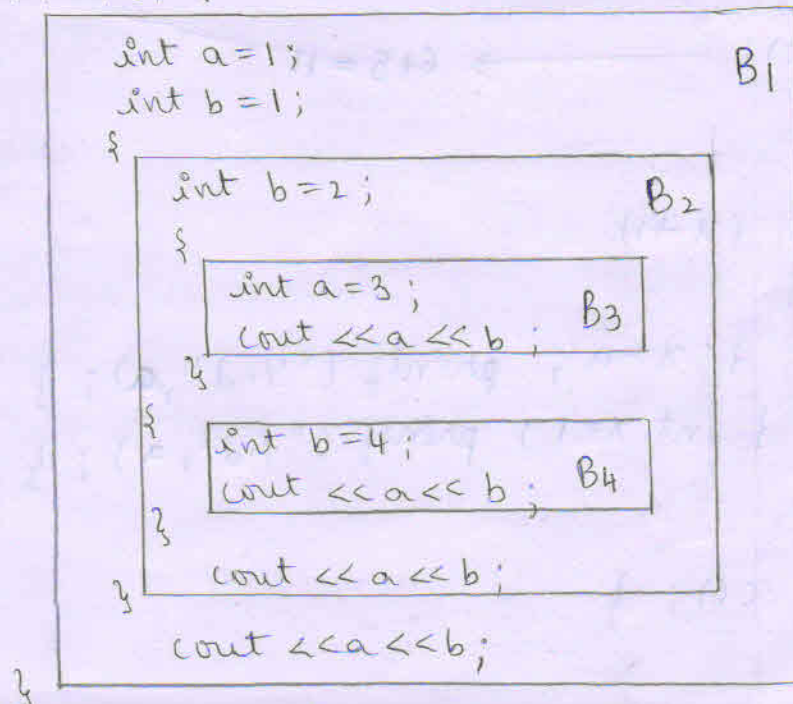 int a=1;
B1
int b=1;
{
int b=2;
B2
{
int a=3;
B3
cout <<a<<b;
}
{
int b=4;
cout <<a<< b;
B4
}
cout <<a<<b;
}
cout <<a<<b;
}